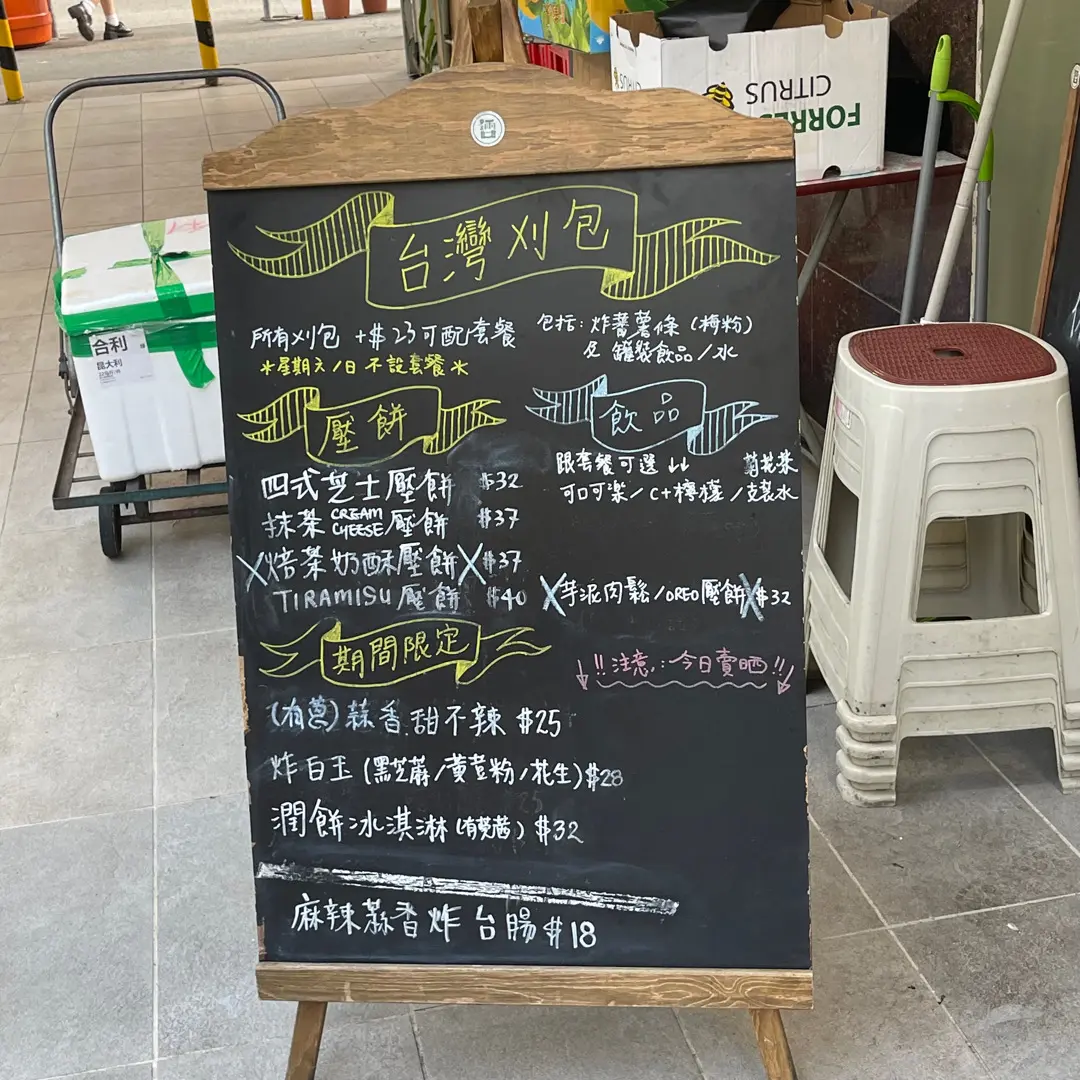 台灣刈包
所有刈包 +$23可配套餐
*星期六/日 不設套餐*
包括: 炸蕃薯條 (梅粉)
及 罐裝飲品/水
壓餅
四式芝士壓餅 $32
抹茶 CREAM CHEESE 壓餅 $37
X焙茶奶酥壓餅X $37
TIRAMISU 壓餅 $40
飲品
跟套餐可選 ↓↓ 菊花茶
可口可樂/C+檸檬/支裝水
X芋泥肉鬆/OREO壓餅X $32
期間限定
↓!!注意:今日賣晒!!↓
(有蔥) 蒜香甜不辣 $25
炸白玉 (黑芝蔴/黃荳粉/花生) $28
潤餅冰淇淋 (有芫茜) $32
麻辣蒜香炸台腸 $18
CITRUS
合利
意大利